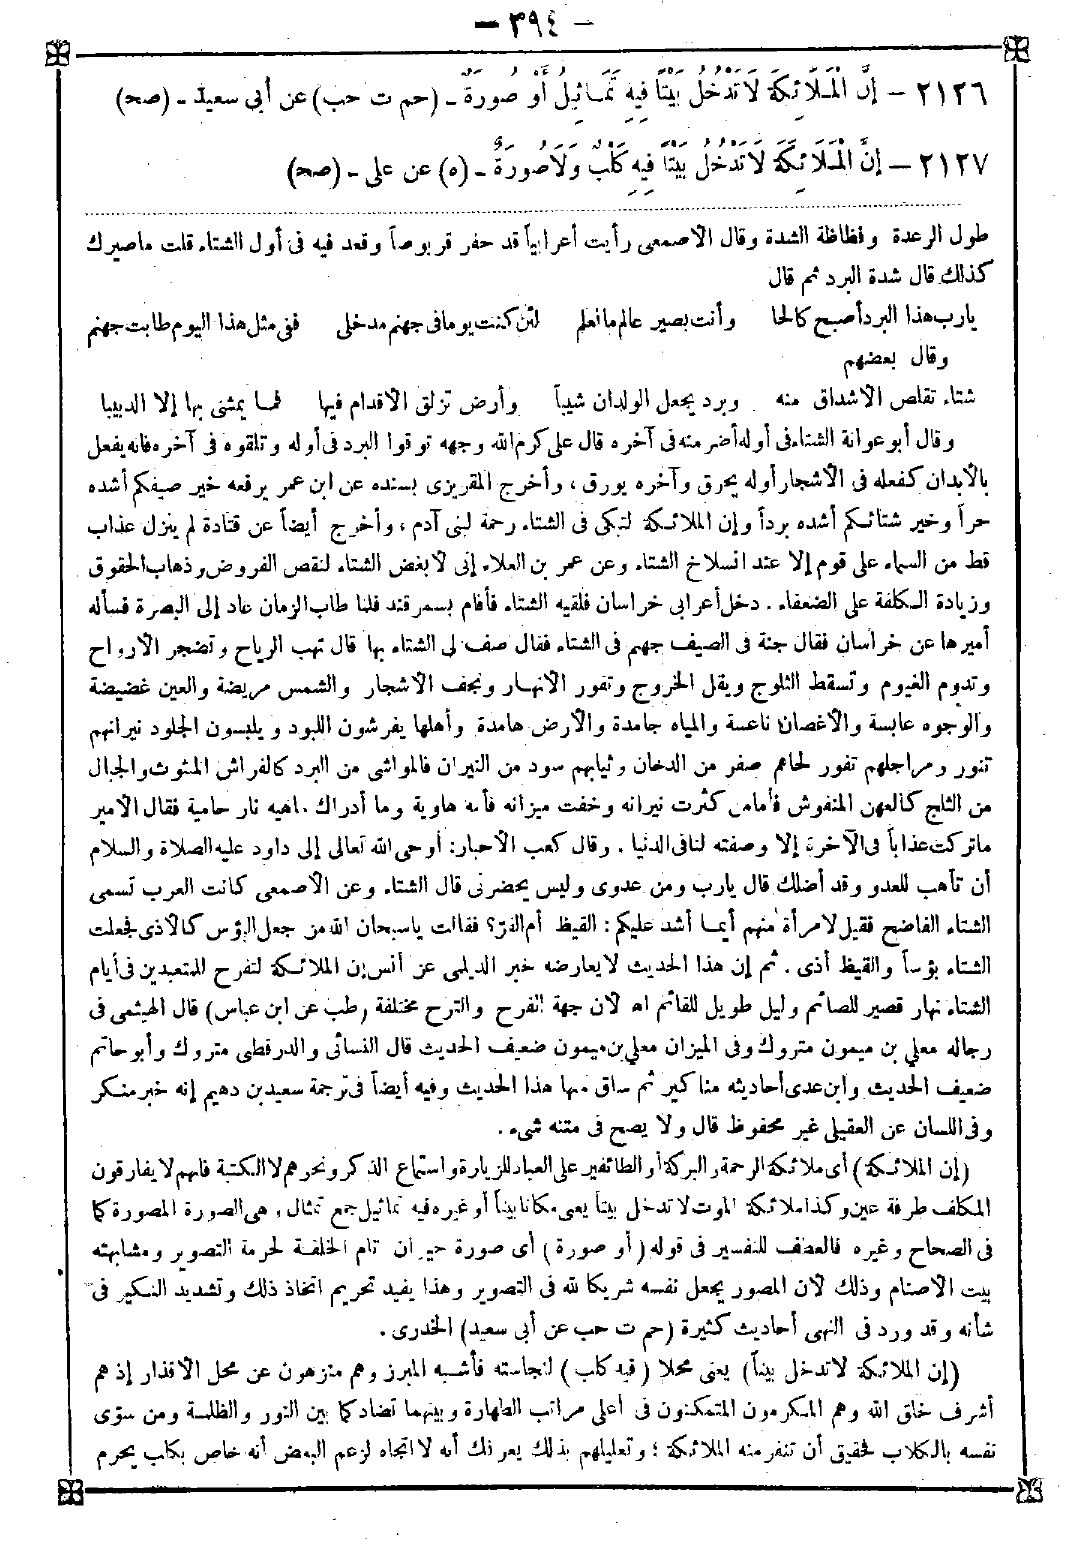 - ٣٩٤ -
٢١٢٦ - إِنَّ الْمَلَائِكَةَ لَا تَدْخُلُ بَيْتًا فِيهِ تَمَاثِيلُ أَوْ صُورَةٌ - (حم ت حب) عن أبي سعيد - (صح)
٢١٢٧ - إِنَّ الْمَلَائِكَةَ لَا تَدْخُلُ بَيْتًا فِيهِ كَلْبٌ وَلَا صُورَةٌ - (ه) عن على - (صح)
طول الرعدة وفظاظة الشدة وقال الأصمعى رأيت أعرابياً قد حفر قربوصاً وقعد فيه فى أول الشتاء قلت ماصيرك
كذلك قال شدة البرد ثم قال
يارب هذا البرد أصبح كالحا وأنت بصير عالم ما نعلم لئن كنت يوما فى جهنم مدخلى ففى مثل هذا اليوم طابت جهنم
وقال بعضهم
شتاء تقلص الأشداق منه وبرد يجعل الولدان شيباً وأرض تزلق الأقدام فيها فما يمشى بها إلا الدبيبا
وقال أبو عوانة الشتاء فى أوله أضر منه فى آخره قال على كرم الله وجهه توقوا البرد فى أوله وتلقوه فى آخره فانه يفعل
بالأبدان كفعله فى الأشجار أوله يحرق وآخره يورق ، وأخرج المقريزى بسنده عن ابن عمر يرفعه خير صيفكم أشده
حراً وخير شتائكم أشده برداً وإن الملائكة لتبكى فى الشتاء رحمة لبنى آدم ، وأخرج أيضاً عن قتادة لم ينزل عذاب
قط من السماء على قوم إلا عند انسلاخ الشتاء وعن عمر بن العلاء إنى لأبغض الشتاء لنقص الفروض وذهاب الحقوق
وزيادة الكلفة على الضعفاء . دخل أعرابى خراسان فلقيه الشتاء فأقام بسمرقند فلما طاب الزمان عاد إلى البصرة فسأله
أميرها عن خراسان فقال جنة فى الصيف جهنم فى الشتاء فقال صف لى الشتاء بها قال تهب الرياح وتضجر الأرواح
وتدوم الغيوم وتسقط الثلوج ويقل الخروج وتفور الأنهار وتجف الأشجار والشمس مريضة والعين غضيضة
والوجوه عابسة والأغصان ناعسة والمياه جامدة والأرض هامدة وأهلها يفرشون اللبود ويلبسون الجلود نيرانهم
تنور ومراجلهم تفور لحاهم صفر من الدخان وثيابهم سود من النيران فالمواشى من البرد كالفراش المبثوث والجبال
من الثلج كالعهن المنفوش فأما من كثرت نيرانه وخفت ميزانه فأمه هاوية وما أدراك ماهيه نار حامية فقال الأمير
ماتركت عذاباً فى الآخرة إلا وصفته لنا فى الدنيا . وقال كعب الأحبار: أوحى الله تعالى إلى داود عليه الصلاة والسلام
أن تأهب للعدو وقد أضلك قال يارب ومن عدوى وليس يحضرنى قال الشتاء وعن الأصمعى كانت العرب تسمى
الشتاء الفاضح فقيل لامرأة منهم أيما أشد عليكم : القيظ أم القر؟ فقالت ياسبحان الله من جعل البؤس كالأذى فجعلت
الشتاء بؤساً والقيظ أذى . ثم إن هذا الحديث لايعارضه خبر الديلمى عن أنس إن الملائكة لتفرح للمتعبدين فى أيام
الشتاء نهار قصير للصائم وليل طويل للقائم اه لأن جهة الفرح والترح مختلفة (طب عن ابن عباس) قال الهيثمى فى
رجاله معلى بن ميمون متروك وفى الميزان معلى بن ميمون ضعيف الحديث قال النسائى والدرقطى متروك وأبو حاتم
ضعيف الحديث وابن عدى أحاديثه مناكير ثم ساق منها هذا الحديث وفيه أيضاً فى ترجمة سعيد بن دهيم إنه خبر منكر
وفى اللسان عن العقيلى غير محفوظ قال ولا يصح فى متنه شىء .
(إن الملائكة) أى ملائكة الرحمة والبركة أو الطائفين على العباد للزيارة واستماع الذكر ونحوهم لا الكتبة فانهم لا يفارقون
المكلف طرفة عين وكذا ملائكة الموت لا تدخل بيتاً يعنى مكانا بيتاً أو غيره فيه تماثيل جمع تمثال ، هى الصورة المصورة كما
فى الصحاح وغيره فالعطف للتفسير فى قوله (أو صورة) أى صورة حيوان تام الخلقة لحرمة التصوير ومشابهته
بيت الأصنام وذلك لأن المصور يجعل نفسه شريكا لله فى التصوير وهذا يفيد تحريم اتخاذ ذلك وتشديد النكير فى
شأنه وقد ورد فى النهى أحاديث كثيرة (حم ت حب عن أبى سعيد) الخدرى .
(إن الملائكة لاتدخل بيتاً) يعنى محلا (فيه كلب) لنجاسته فأشبه المبرز وهم منزهون عن محل الأقذار إذ هم
أشرف خلق الله وهم المكرمون المتمكنون فى أعلى مراتب الطهارة وبينهما تضاد كما بين النور والظلمة ومن سوّى
نفسه بالكلاب فحقيق أن تنفر منه الملائكة ؛ وتعليلهم بذلك يعرفك أنه لا اتجاه لزعم البعض أنه خاص بكلب يحرم